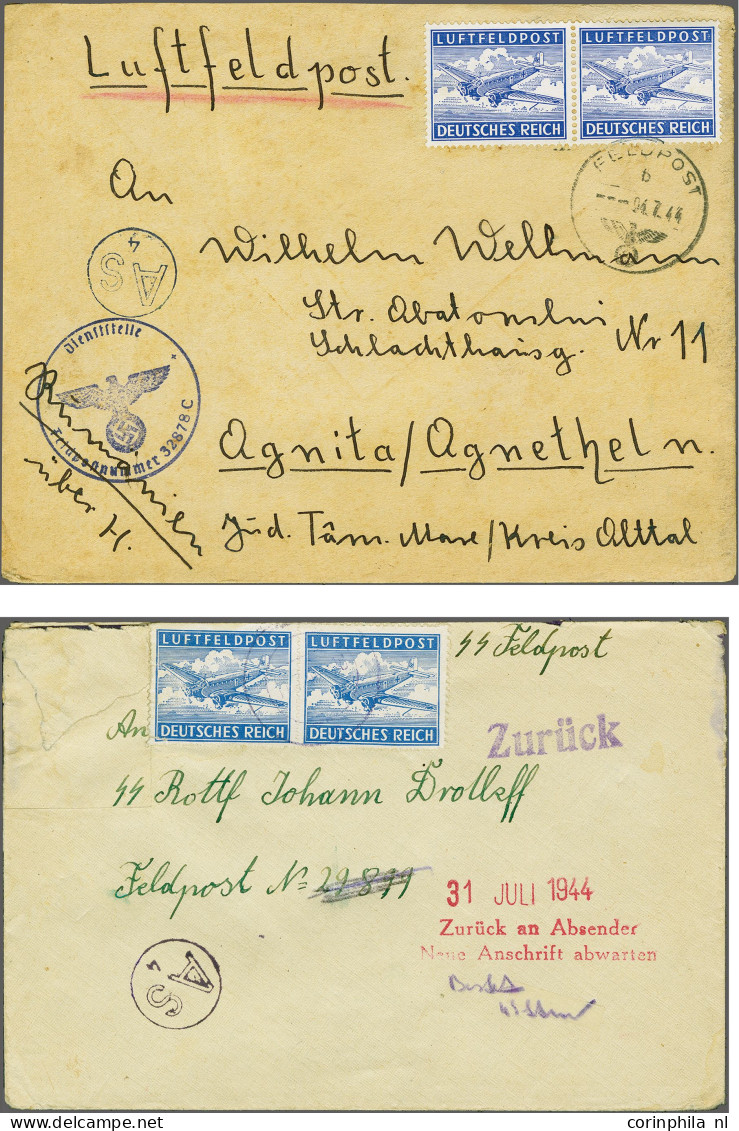 Luftfeldpost.
LUFTFELDPOST LUFTFELDPOST
DEUTSCHES REICH DEUTSCHES REICH
FELDPOST
b
---04.7.44
a
An
4
AS
Wilhelm Wellmann
Str. Abatorului
Schlachthausg. Nr 11
Dienststelle
Feldpostnummer 32878 C
Rumänien
über H.
Agnita/Agnetheln.
Jud. Târn. Mare/Kreis Alttal
LUFTFELDPOST LUFTFELDPOST
DEUTSCHES REICH DEUTSCHES REICH
SS Feldpost
An
Zurück
SS Rottf Johann Drotleff
Feldpost No 29899
31 JULI 1944
Zurück an Absender
Neue Anschrift abwarten
AS
4
corinphila nl